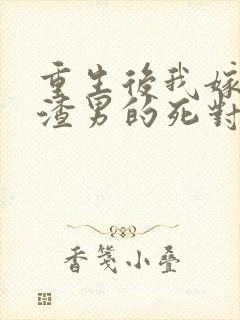 重生後我嫁
渣男的死對
香箋小疊